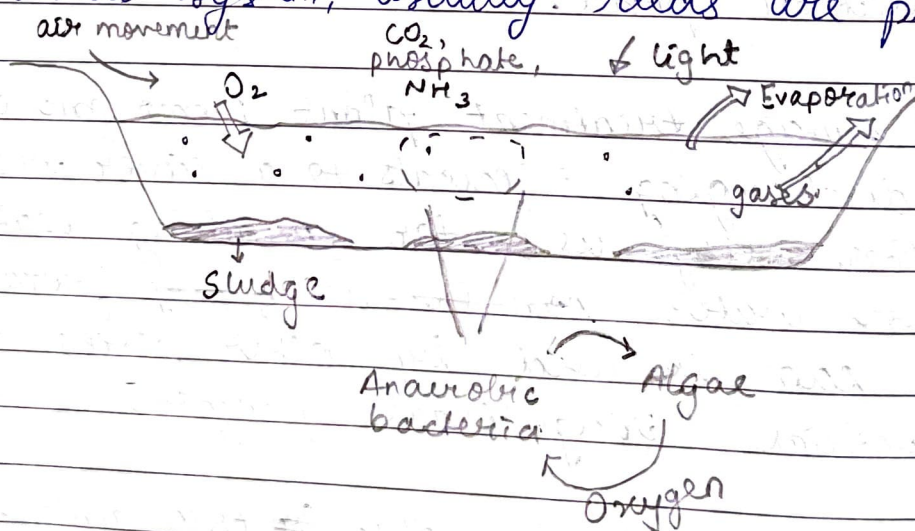 usually. reeds are p
air movement
CO₂,
phosphate,
NH₃
light
O₂
Evaporation
gases.
Sludge
Anaerobic
bacteria.
Algae
Oxygen